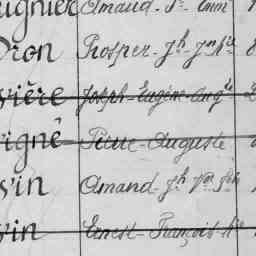 ugnier Amand
Oron Prosper - Jh
vière Joseph - Eugène - Augte
vigné Pierre - Auguste
vin Amand - Jh
vin Ernest - François